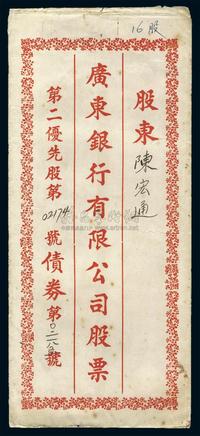 16股
股東 陳宏通
廣東銀行有限公司股票
第二優先股第02174號債券第〇二八 號